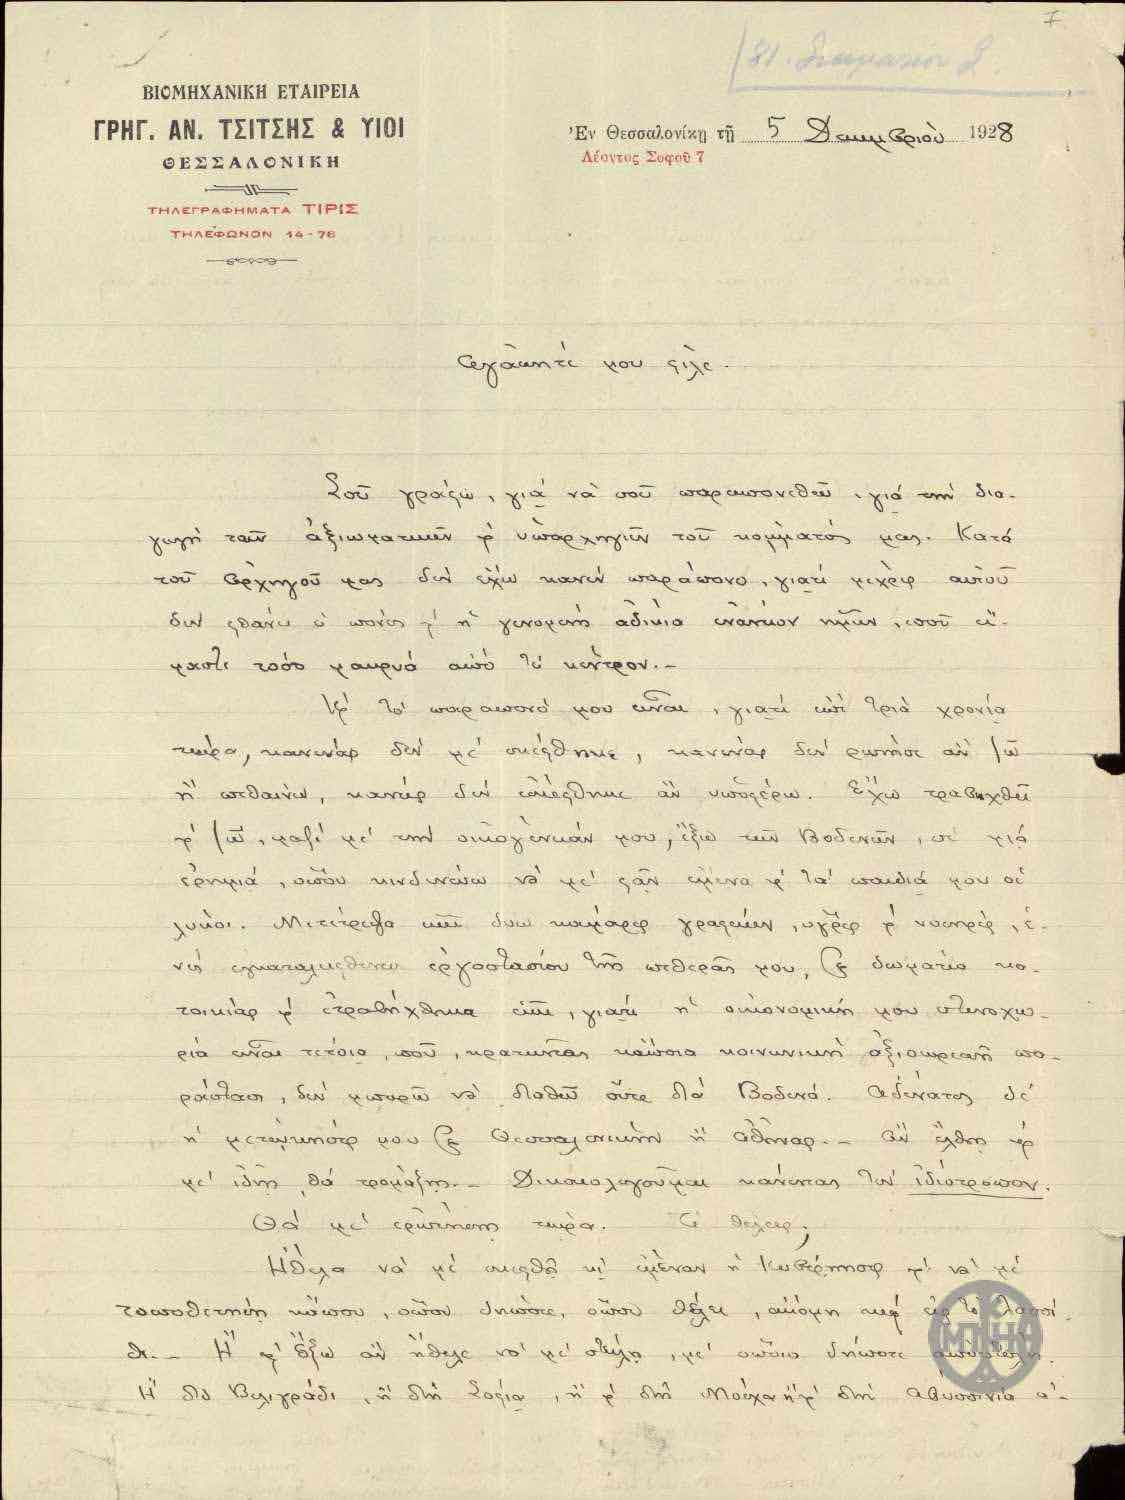 ΒΙΟΜΗΧΑΝΙΚΗ ΕΤΑΙΡΕΙΑ
ΓΡΗΓ. ΑΝ. ΤΣΙΤΣΗΣ & ΥΙΟΙ
ΘΕΣΣΑΛΟΝΙΚΗ
ΤΗΛΕΓΡΑΦΗΜΑΤΑ ΤΙΡΙΣ
ΤΗΛΕΦΩΝΟΝ 14-76
Ἐν Θεσσαλονίκῃ τῇ 5 Δεκεμβρίου 1928
Λέοντος Σοφοῦ 7
Ἀγαπητέ μου φίλε.
Σοῦ γράφω, γιά νὰ σοῦ παραπονεθῶ, γιά τήν δια-
γωγή τῶν ἀξιωματικῶν & ὑπαρχηγῶν τοῦ κόμματός μας. Κατά
τοῦ Ἀρχηγοῦ μας δέν ἔχω κανέν παράπονο, γιατί μέχρις αὐτοῦ
δέν φθάνει ὁ πόνος & ἡ γενομένη ἀδικία ἐναντίον ἡμῶν, ποῦ εἴ-
μαστε τόσο μακρυά ἀπό τό κέντρον.-
Κι' τό παράπονό μου εἶναι, γιατί ἐπί τρία χρονια
τώρα, κανένας δέν μέ σκέφθηκε, κανένας δέν ρώτησε ἄν ζῶ
ἤ πεθαίνω, κανείς δέν ἐσκέφθηκε ἄν ὑποφέρω. Ἔχω τραβηχθεῖ
& ζῶ, μαζί μέ τήν οἰκογένειάν μου, ἔξω τῶν Βοδενῶν, σέ μιά
ἐρημιά, ὅπου κινδυνεύω νά μέ φᾶν ἐμένα & τά παιδιά μου οἱ
λύκοι. Μετέτρεψα ἐκεῖ δυό καμάρες γραφείων, ὑγρές & νοσηρές, ἑ-
νός ἐγκαταλειφθέντος ἐργοστασίου τῆς πεθερᾶς μου, σέ δωμάτιο κα-
τοικίας & ἐτραβήχθηκα ἐκεῖ, γιατί ἡ οἰκονομική μου στενοχω-
ρία εἶναι τέτοια, ποῦ, κρατῶντας κάποια κοινωνική ἀξιοπρεπῆ πα-
ράσταση, δέν μπορῶ νά σταθῶ οὔτε στά Βοδενά. Ἀδύνατος δέ
ἡ μετοίκησίς μου σέ Θεσσαλονίκην ἤ Ἀθήνας.- Ἄν ἔλθῃς &
μέ ἰδῇς θά τρομάξῃς.- Δικαιολογοῦμαι κάνοντας τόν ἰδιότροπον.
Θά μέ ἐρωτήσῃς τώρα. Τί θέλεις;
Ἤθελα νά μέ σκεφθῇ κι' ἐμέναν ἡ Κυβέρνησις & νά μέ
τοποθετήσῃ κάπου, ὅπου δήποτε, ὅπου θέλει, ἀκόμη καί εἰς τό Λασῆ-
θι.- Ἤ & ἔξω ἄν ἤθελε νά μέ στείλῃ, μέ ὅποια δήποτε ἀποστολή.
Ἤ στό Βελιγράδι, ἤ στή Σόφια, ἤ & στή Μόσχα ἤ & στήν Ἀβυσσινία ἀ-